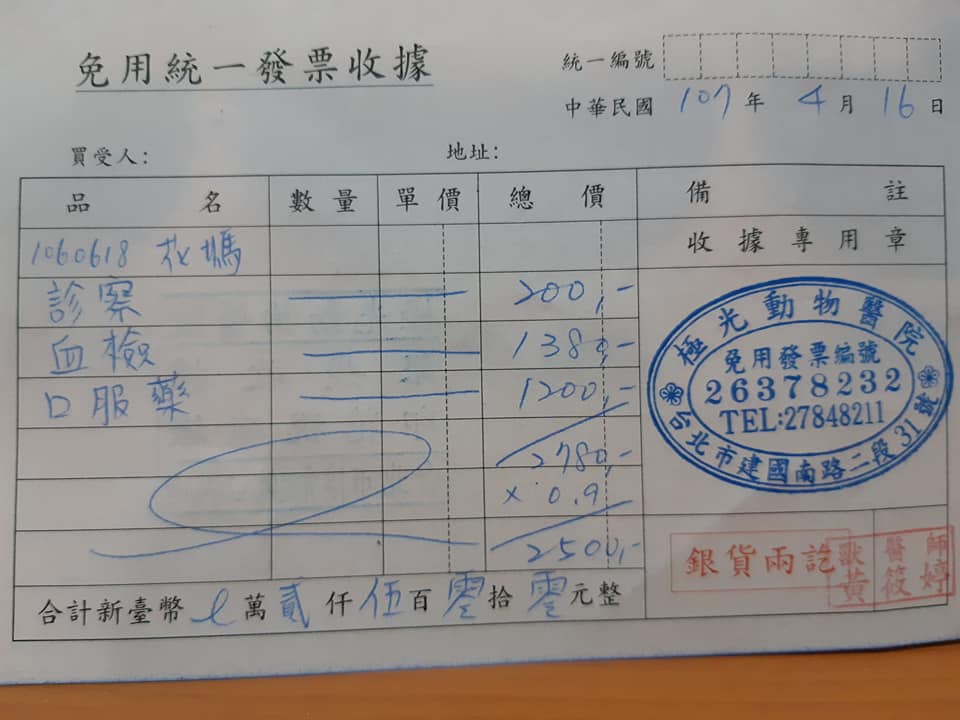 免用統一發票收據
統一編號
中華民國 107 年 4 月 16 日
買受人： 地址：
品名 數量 單價 總價 備註
收據專用章
1060618 花媽
診察 200,-
血檢 1380,-
口服藥 1200,-
2780,-
x 0.9
2500,-
合計新臺幣 萬 貳 仟 伍 百 零 拾 零 元整
極光動物醫院
免用發票編號
26378232
TEL:27848211
台北市建國南路二段31號
銀貨兩訖
獸醫師
黃筱婷